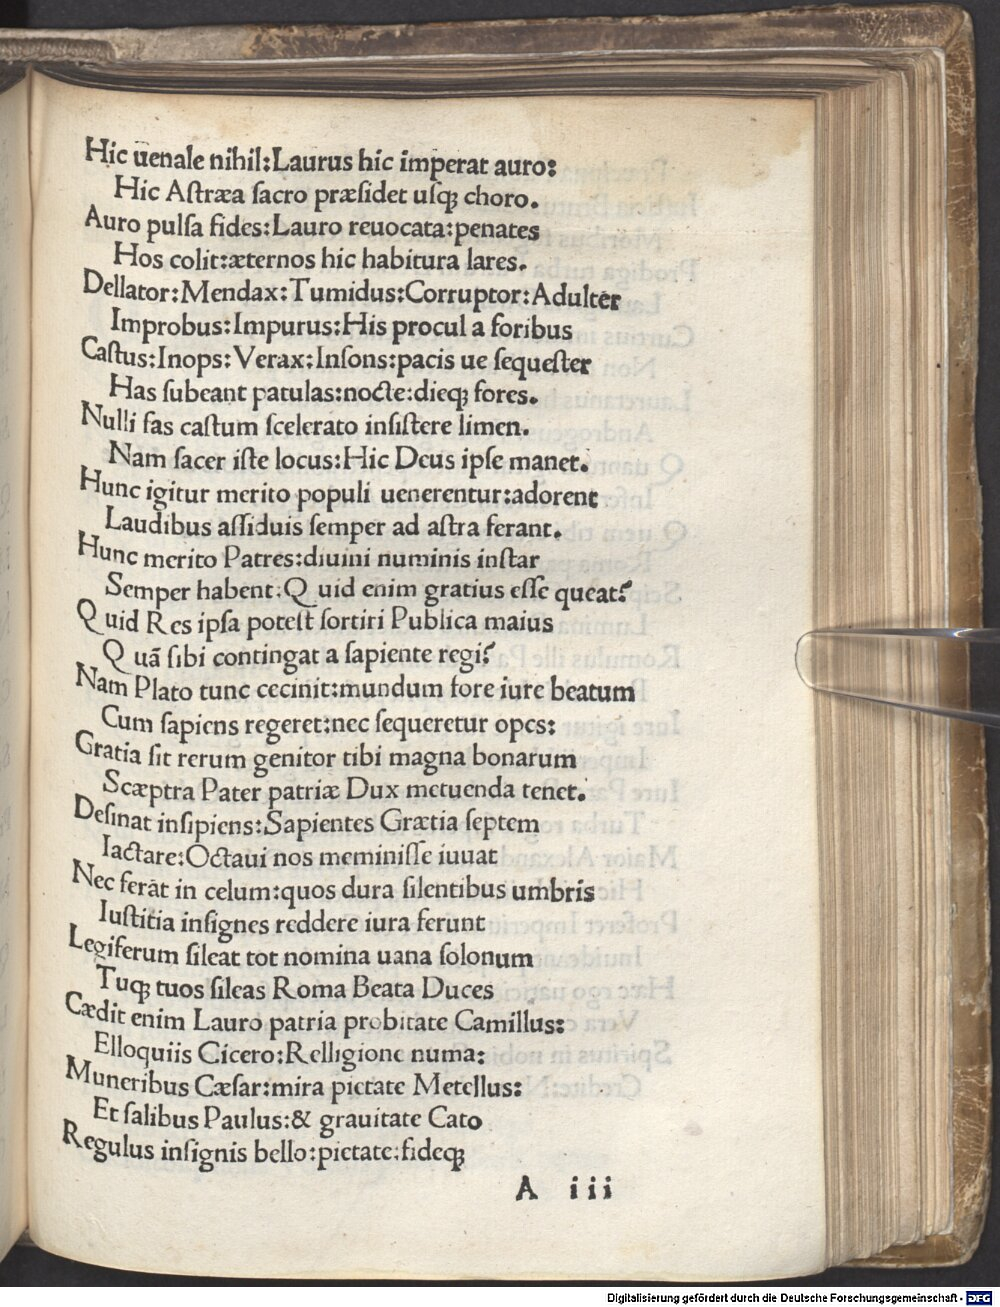 Hic ūenale nihil:Laurus hic imperat auro:
Hic Aſtræa ſacro præſidet uſqꝫ choro.
Auro pulſa fides:Lauro reuocata:penates
Hos colit:æternos hic habitura lares.
Dellator:Mendax:Tumidus:Corruptor:Adulter
Improbus:Impurus:His procul a foribus
Caſtus:Inops:Verax:Inſons:pacis ue ſequeſter
Has ſubeant patulas:nocte:dieqꝫ fores.
Nulli fas caſtum ſcelerato inſiſtere limen.
Nam ſacer iſte locus:Hic Deus ipſe manet.
Hunc igitur merito populi uenerentur:adorent
Laudibus aſſiduis ſemper ad aſtra ferant.
Hunc merito Patres:diuini numinis inſtar
Semper habent:Quid enim gratius eſſe queat?
Quid Res ipſa poteſt ſortiri Publica maius
Quā ſibi contingat a ſapiente regi?
Nam Plato tunc cecinit:mundum fore iure beatum
Cum ſapiens regeret:nec ſequeretur opes:
Gratia ſit rerum genitor tibi magna bonarum
Scæptra Pater patriæ Dux metuenda tenet.
Deſinat inſipiens:Sapientes Grætia ſeptem
Iactare:Octaui nos meminiſſe iuuat
Nec ferāt in celum:quos dura ſilentibus umbris
Iuſtitia inſignes reddere iura ferunt
Legiferum ſileat tot nomina uana ſolonum
Tuqꝫ tuos ſileas Roma Beata Duces
Cædit enim Lauro patria probitate Camillus:
Elloquiis Cicero:Relligione numa:
Muneribus Cæſar:mira pietate Metellus:
Et ſalibus Paulus:& grauitate Cato
Regulus inſignis bello:pietate:fideqꝫ
A iii
Digitalisierung gefördert durch die Deutsche Forschungsgemeinschaft - DFG